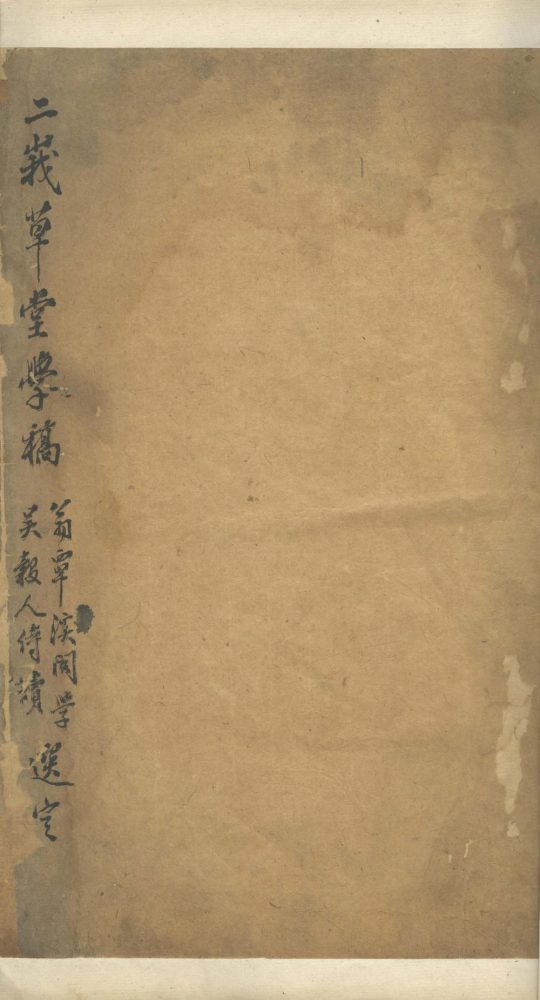 二峩草堂學稿
翁覃溪閣學
吳穀人侍讀
選定